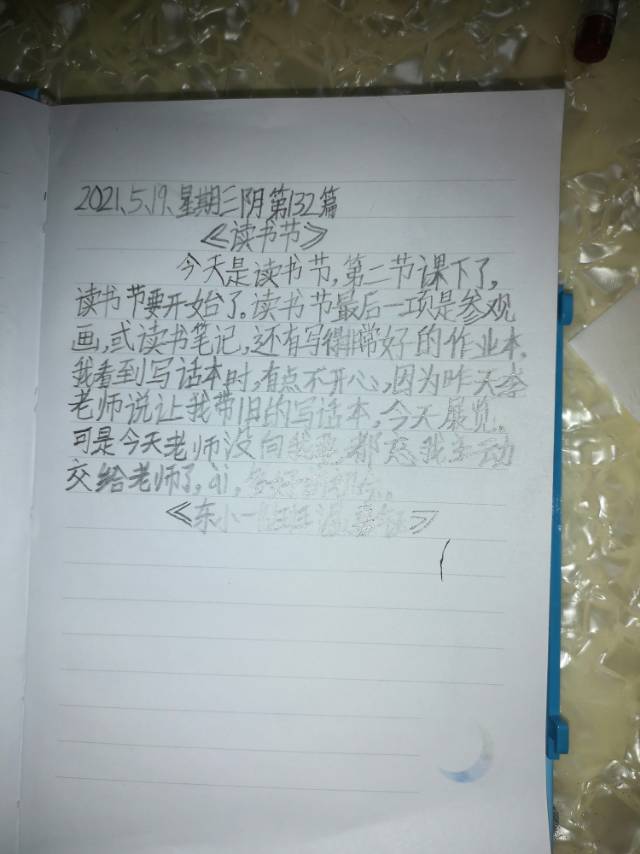 2021.5.19.星期三阴第132篇
《读书节》
今天是读书节,第二节课下了,
读书节要开始了。读书节最后一项是参观
画,或读书笔记,还有写得非常好的作业本,
我看到写话本时,有点不开心,因为昨天李
老师说让我带旧的写话本,今天展览。
可是今天老师没问我要,都怨我主动
交给老师了,ai,
《东小一